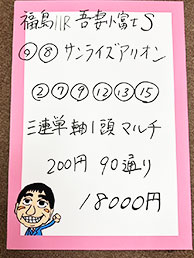 福島11R 吾妻小富士S
⑨⑧ サンライズアリオン
②⑦⑨⑫⑬⑮
三連単軸1頭マルチ
200円 90通り
18000円